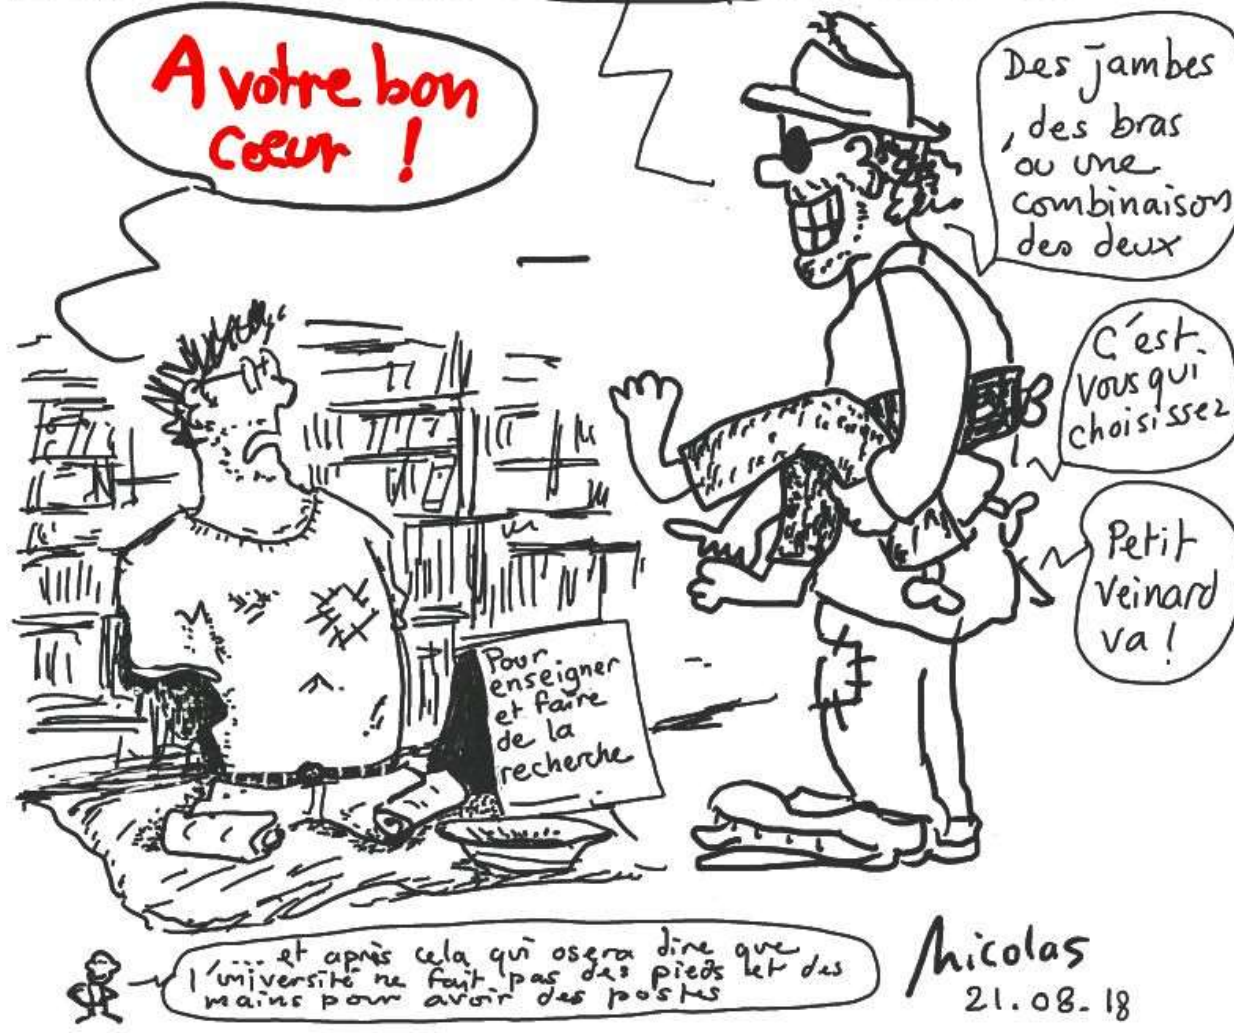 A votre bon
cœur !
Des jambes
, des bras
ou une
combinaison
des deux
C'est
vous qui
choisissez
Petit
veinard
va !
Pour
enseigner
et faire
de la
recherche
... et après cela qui osera dire que
l'université ne fait pas des pieds et des
mains pour avoir des postes
Nicolas
21.08.18